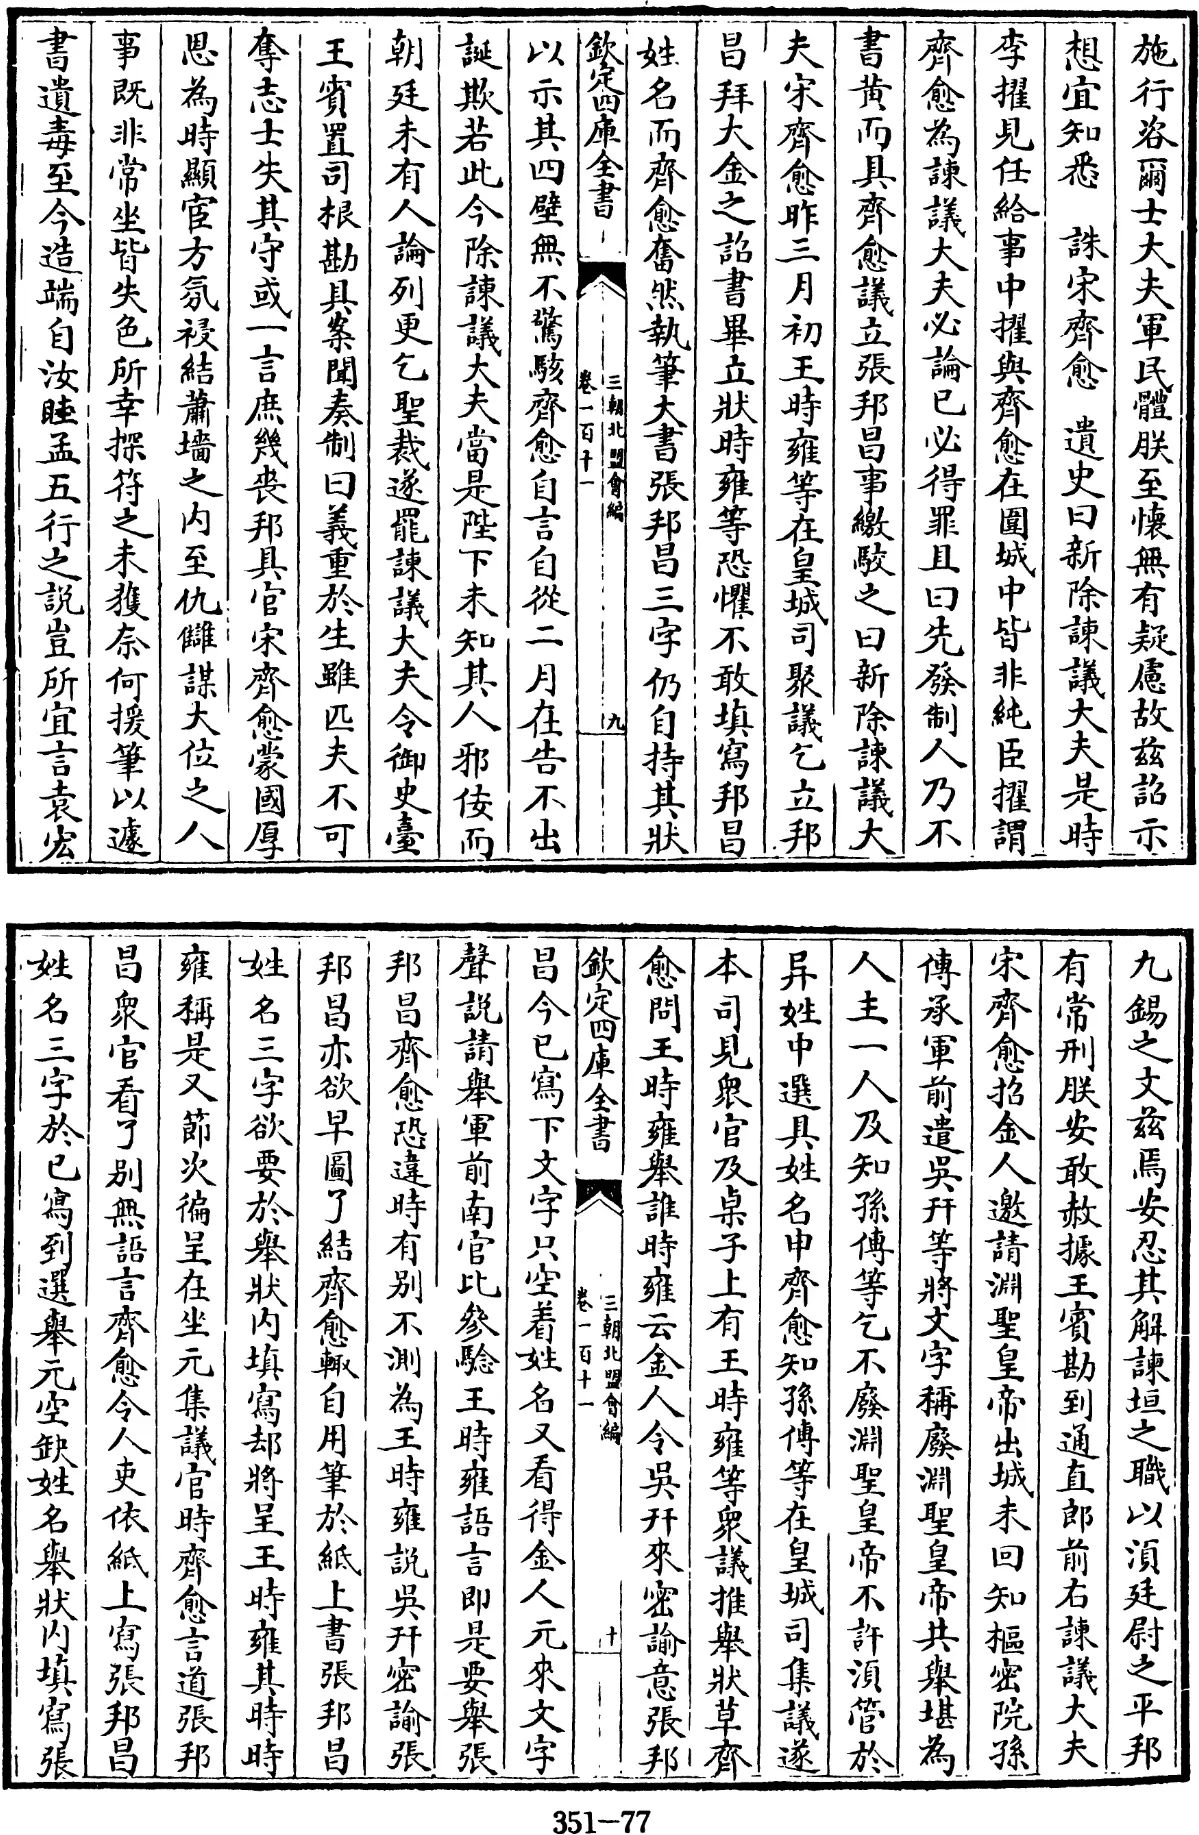 施行咨爾士大夫軍民體朕至懐無有疑慮故兹詔示
想宜知悉　誅宋齊愈　遺史曰新除諫議大夫是時
李擢見任給事中擢與齊愈在圍城中皆非純臣擢謂
齊愈為諫議大夫必論已必得罪且曰先發制人乃不
書黄而具齊愈議立張邦昌事繳駮之曰新除諫議大
夫宋齊愈昨三月初王時雍等在皇城司聚議乞立邦
昌拜大金之詔書畢立狀時雍等恐懼不敢填寫邦昌
姓名而齊愈奮然執筆大書張邦昌三字仍自持其狀
欽定四庫全書
三朝北盟會編
卷一百十一
九
以示其四壁無不驚駭齊愈自言自從二月在告不出
誕欺若此今除諫議大夫當是陛下未知其人邪佞而
朝廷未有人論列更乞聖裁遂罷諫議大夫令御史臺
王賓置司根勘具案聞奏制曰義重於生雖匹夫不可
奪志士失其守或一言庶幾喪邦具官宋齊愈蒙國厚
恩為時顯宦方氛祲結蕭墻之内至仇讎謀大位之人
事既非常坐皆失色所幸探符之未獲奈何援筆以遽
書遺毒至今造端自汝眭孟五行之説豈所宜言袁宏
九錫之文兹焉安忍其解諫垣之職以湏廷尉之平邦
有常刑朕安敢赦據王賓勘到通直郎前右諫議大夫
宋齊愈招金人邀請淵聖皇帝出城未回知樞密院孫
傅承軍前遣吳幵等將文字稱廢淵聖皇帝共舉堪為
人主一人及知孫傅等乞不廢淵聖皇帝不許湏管於
异姓中選具姓名申齊愈知孫傅等在皇城司集議遂
本司見衆官及桌子上有王時雍等衆議推舉狀草齊
愈問王時雍舉誰時雍云金人令吳幵來密諭意張邦
欽定四庫全書
三朝北盟會編
卷一百十一
十
昌今已寫下文字只空着姓名又看得金人元來文字
聲説請舉軍前南官比參驗王時雍語言即是要舉張
邦昌齊愈恐違時有别不測為王時雍説吳幵密諭張
邦昌亦欲早圖了結齊愈輙自用筆於紙上書張邦昌
姓名三字欲要於舉狀内填寫却將呈王時雍其時時
雍稱是又節次徧呈在坐元集議官時齊愈言道張邦
昌衆官看了别無語言齊愈令人吏依紙上寫張邦昌
姓名三字於已寫到選舉元空缺姓名舉狀内填寫張
351-77